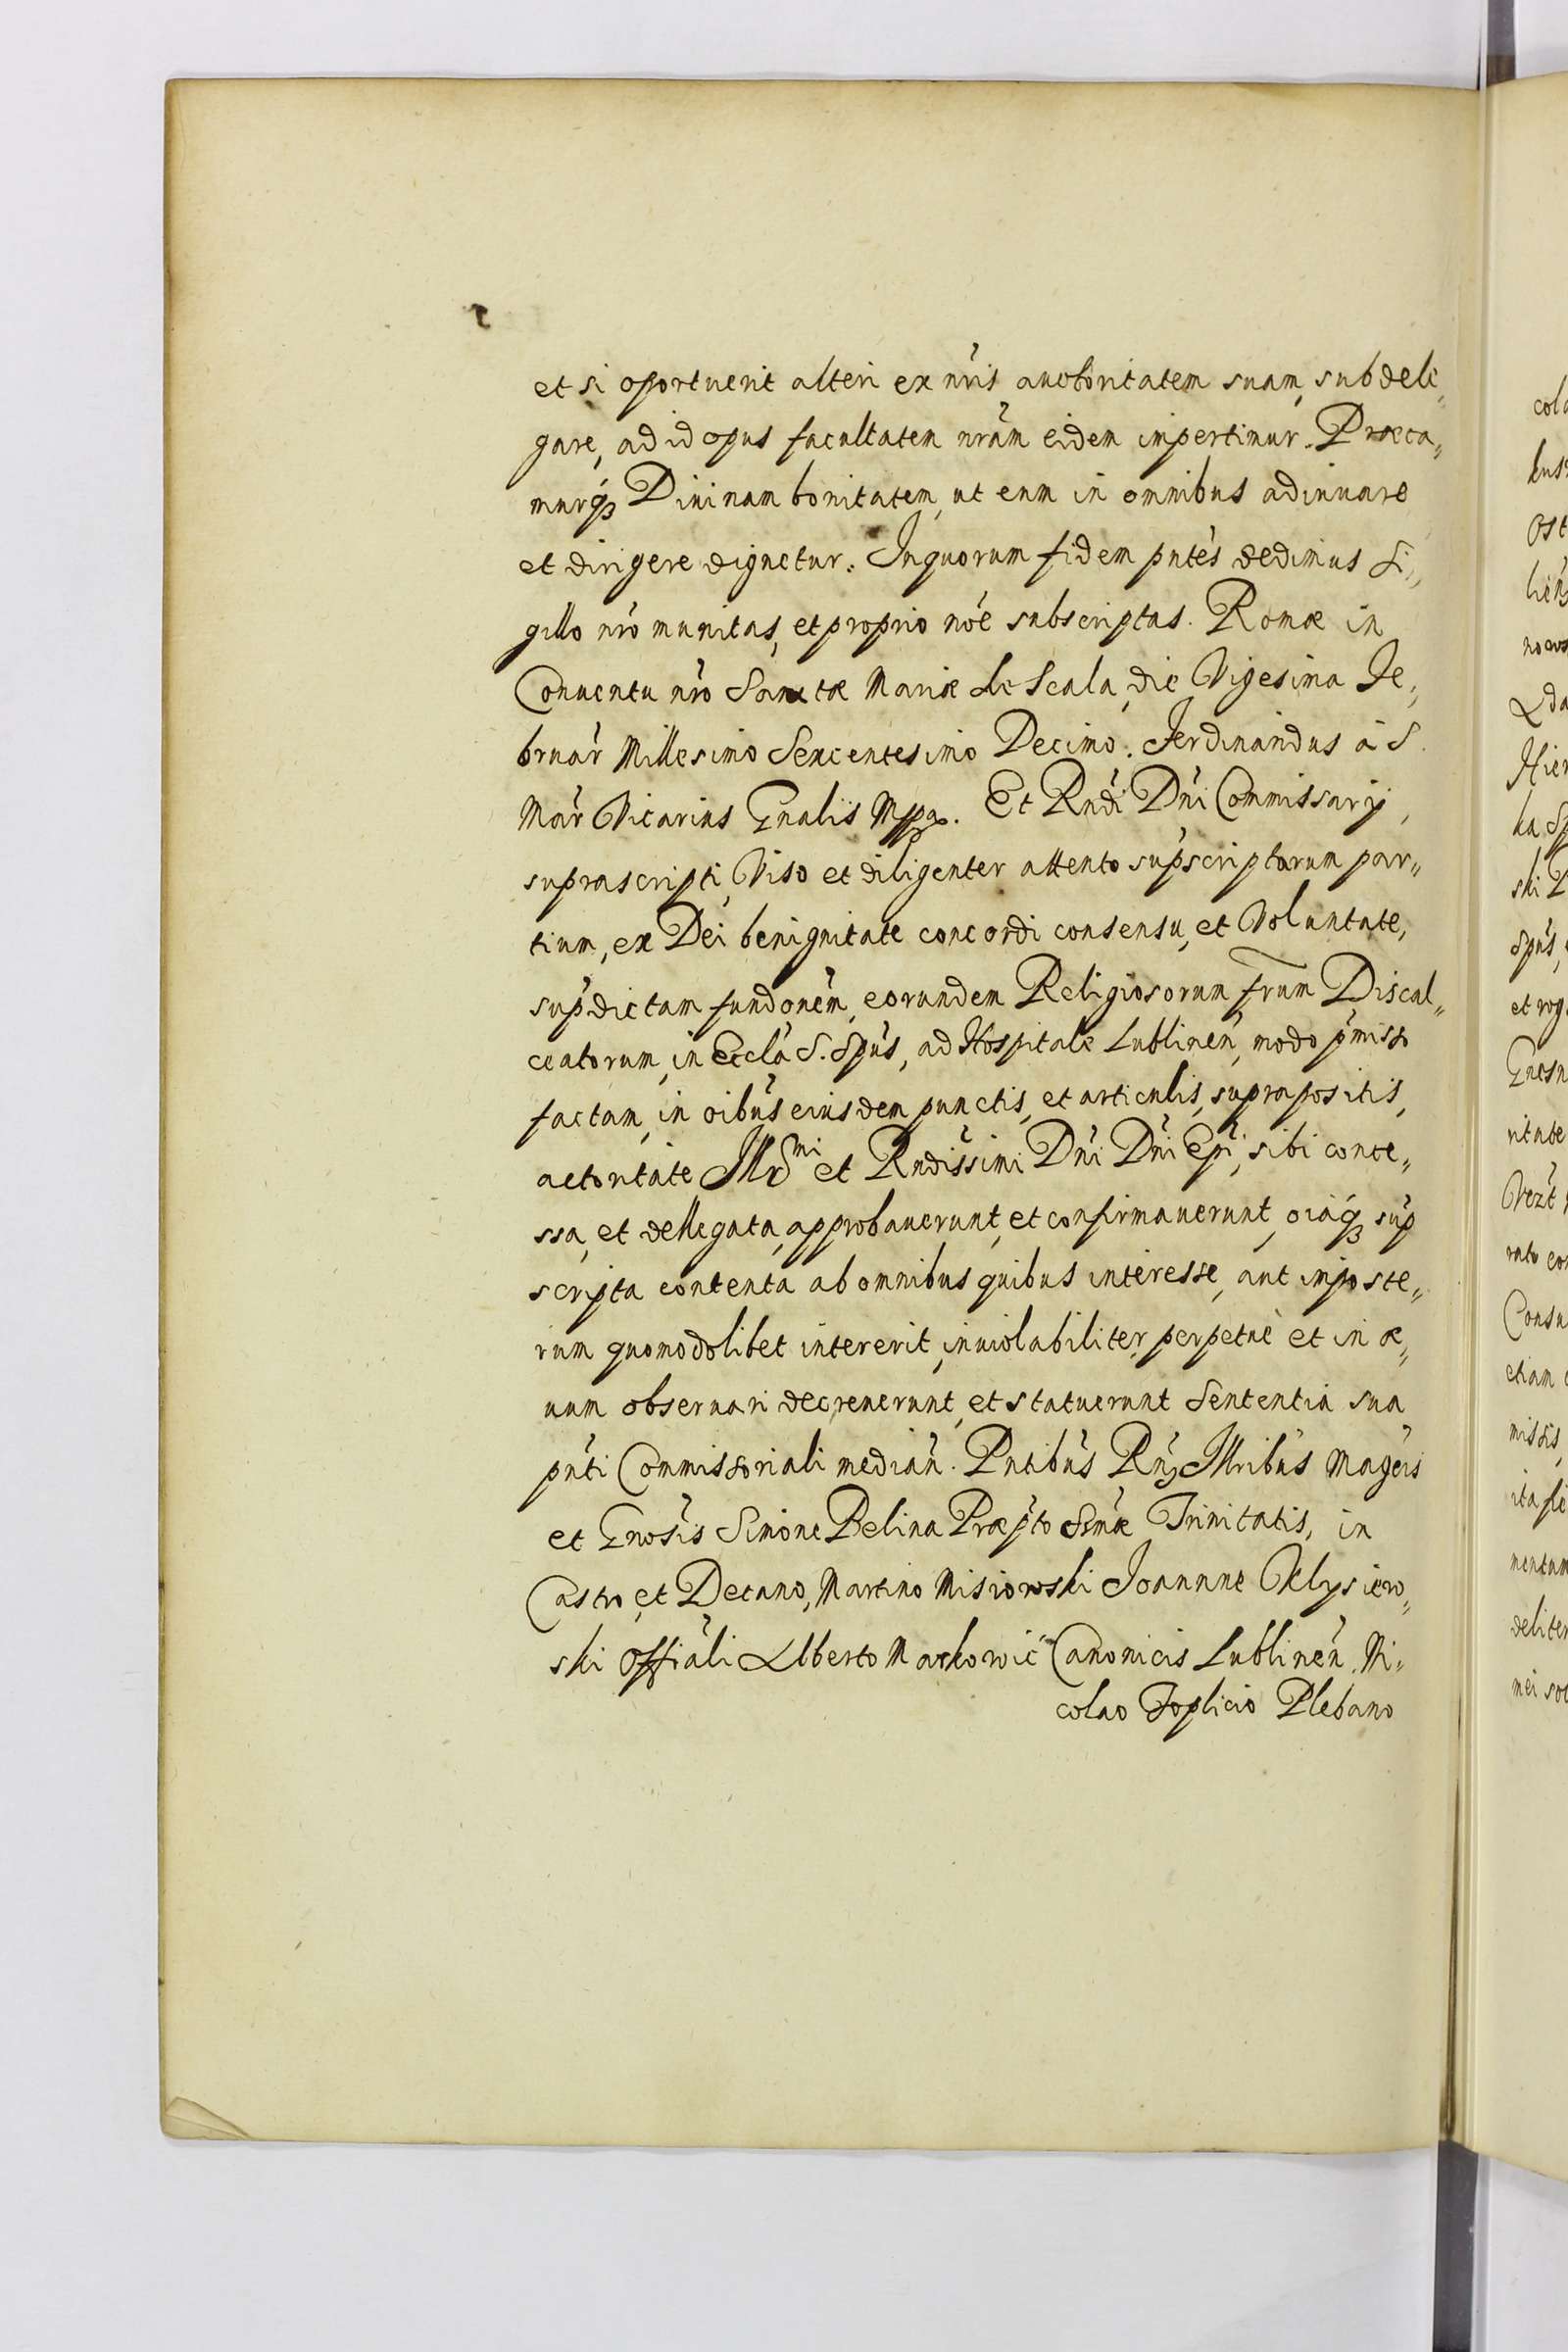 et si oportuerit alteri ex nris auctoritatem suam, subdele„
gare, ad id opus facultatem nram eidem impertimur. Præca„
murq3 Diuinam bonitatem, ut eum in omnibus adiuuare
et dirigere dignetur. In quorum fidem pntes dedimus si„
gillo nro munitas, et proprio noe subscriptas. Romæ in
Conuentu nro Sanctæ Mariæ de Scala, die Vigesima Fe„
bruar Millesimo Sexcentesimo Decimo. Ferdinandus à S.
Mar Vicarius Gnalis Mpp. Et Rndi Dni Commissarij,
suprascripti, Viso et diligenter attento supscriptorum par„
tium, ex Dei benignitate concordi consensu, et Voluntate,
supdictam fundonem, eorundem Religiosorum frum Discal„
ceatorum, in Eccla S. Spus, ad Hospitale Lublinen, modo pmisso
factam, in oibus eiusdem punctis, et articulis, suprapositis,
actoritate Illrmi et Rndissimi Dni Dni Epi, sibi conce„
ssa, et dellegata, approbauerunt, et confirmauerunt, oiaq3 sup
scripta contenta ab omnibus quibus interesse, aut imposte„
rum quomodolibet intererit, inuiolabiliter, perpetuè et in æ„
uum obseruari decreuerunt, et statuerunt Sententia sua
pnti Commissoriali median. Pntibus Rn3 Illribus Mageis
et Gnosis Simone Belina Præpto Smæ Trinitatis, in
Castro, et Decano, Martino Misiowski Joannne Klysiew„
ski Offiali Alberto Markowic Canonicis Lublinen. Ni„
colao Toplicio Plebano